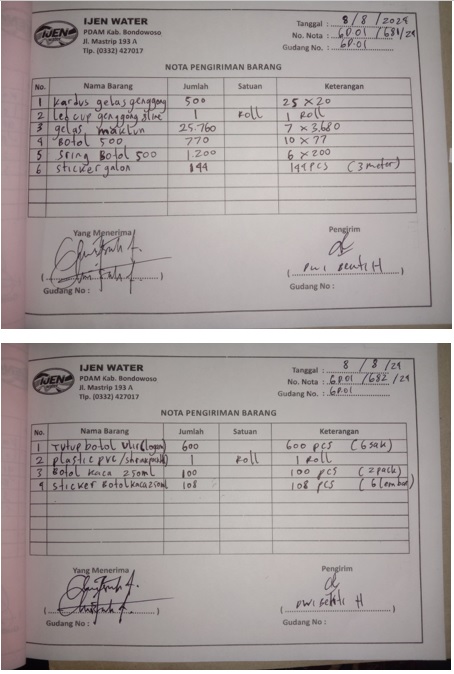 IJEN WATER
PDAM Kab. Bondowoso
Jl. Mastrip 193 A
Tlp. (0332) 427017
IJEN
Tanggal : 8 / 8 / 2024
No. Nota : 6D.01 /681/24
Gudang No. : 6D.01
NOTA PENGIRIMAN BARANG
No. Nama Barang Jumlah Satuan Keterangan
1 kardus gelas genggong 500 25 x 20
2 Led cup genggong 1 Roll 1 Roll
3 gelas maklun 25.760 7 x 3.680
4 Botol 500 770 10 x 77
5 Sring Botol 500 1.200 6 x 200
6 Sticker galon 144 144 pcs (3 meter)
Yang Menerima Pengirim
Gudang No : Gudang No :
IJEN WATER
PDAM Kab. Bondowoso
Jl. Mastrip 193 A
Tlp. (0332) 427017
IJEN
Tanggal : 8 / 8 / 24
No. Nota : 6D.01 /682 /24
Gudang No. : 6D.01
NOTA PENGIRIMAN BARANG
No. Nama Barang Jumlah Satuan Keterangan
1 Tutup botol 600 600 pcs (6 sak)
2 plastic PVC / 1 Roll 1 Roll
3 Botol kaca 250ml 100 100 pcs (2 pack)
4 Sticker Botol kaca 250ml 108 108 pcs (6 lembar)
Yang Menerima Pengirim
Gudang No : Gudang No :